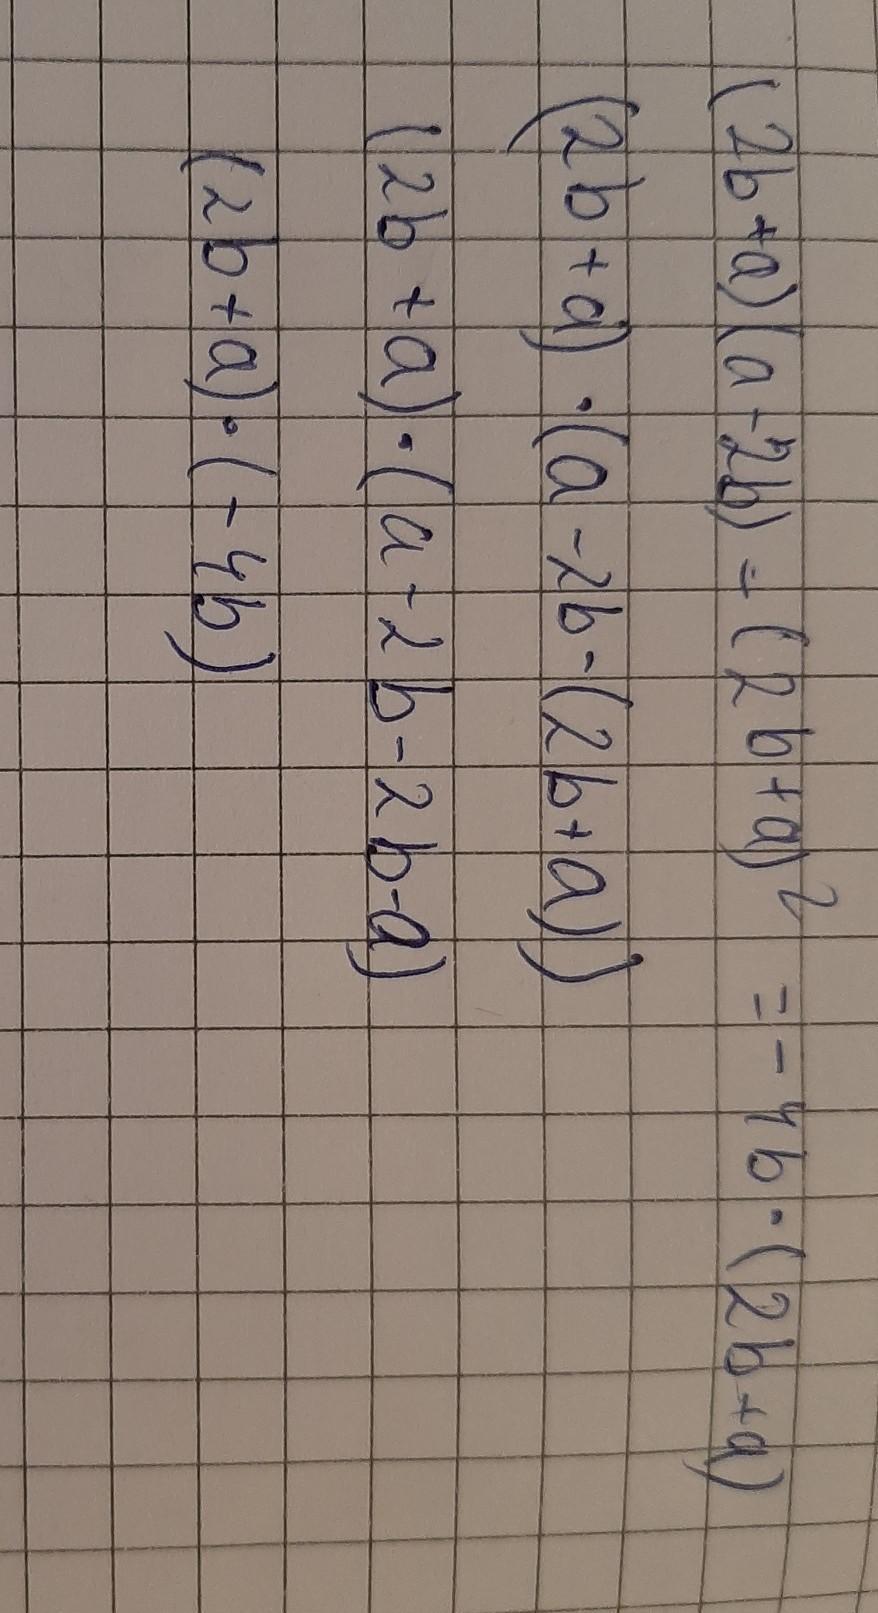 (2b+a)(a-2b)-(2b+a)² = -4b·(2b+a)
(2b+a)·(a-2b-(2b+a))
(2b+a)·(a-2b-2b-a)
(2b+a)·(-4b)